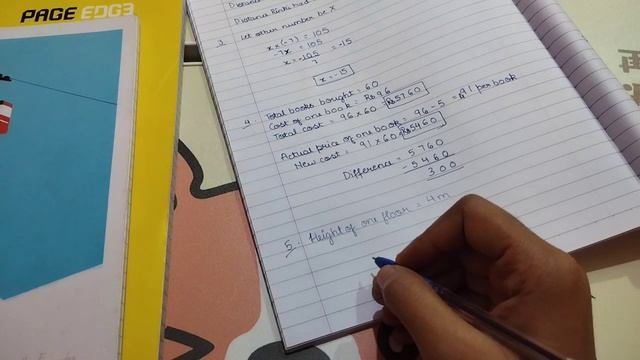 PAGE EDG3
Distance Rinki had
3. Let other number be x
x×(-7) = 105
-7x = 105
x = -105/7 = -15
x = -15
4. Total books bought = 60
Cost of one book = Rs 96
Total cost = 96×60 = Rs5760
Actual price of one book = 96-5 = 91 per book
New cost = 91×60 = Rs5460
Difference = 5760
-5460
300
5. Height of one floor = 4m